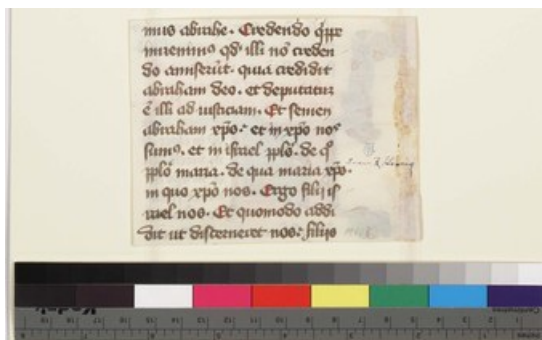 mus abrahe. Credendo qppe
inuenimꝰ qd' illi nō creden
do amiserūt. quia credidit
abraham deo. et deputatum
ē illi ad iusticiam. Et semen
abraham xpō. et in xpō nos
sumꝰ. et in israel pplō. de q̄
pplō maria. de qua maria xpō.
in quo xpō nos. Ergo filij is
rael nos. Et quomodo addi
dit ut discerneret nos. filijs
Kodak